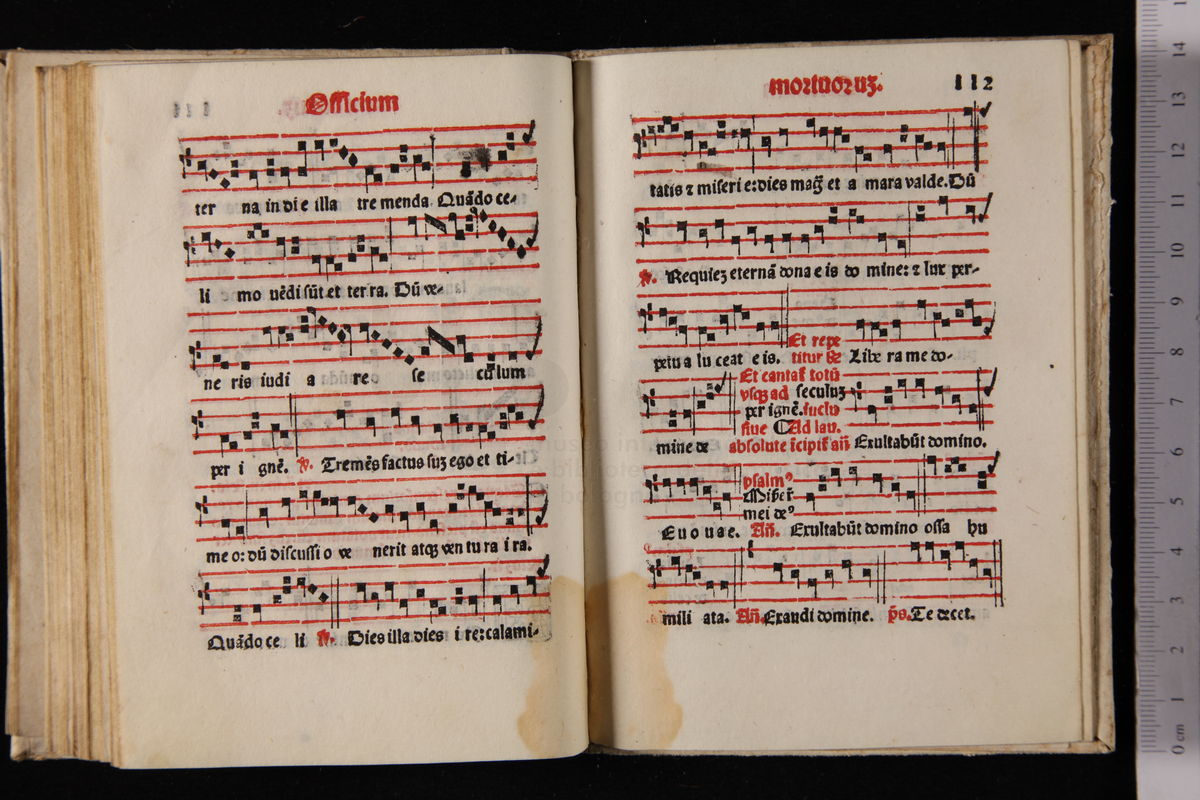 Officium
ter na in die illa tremenda. Quãdo ce-
li mo uẽdi sũt et terra. Dũ ve-
neris iudi a re se culum
per i gnẽ. ℣. Tremẽs factus suꝫ ego et ti-
meo: dũ discussio ve nerit atqꝫ ventura ira.
Quãdo ce li ℣. Dies illa dies i re: calami-
mortuoruꝫ. 112
tatis ⁊ miserie: dies mag̃ et amara valde. Dũ
℟. Requieꝫ eternã dona eis domine: ⁊ lux per-
petua luceat eis.
Et repe
titur ℟
Libera me do-
Et cantat̃ totũ
vsqꝫ ad seculuꝫ
per ignẽ.
siue ⸿ Ad lau.
mine de absolute ĩcipit̃ añ Exultabũt domino.
psalmꝰ
Miser̃
mei deꝰ
Euouae. Añ. Exultabũt domino ossa hu
mili ata. Añ. Exaudi domine. p̃s. Te decet.
14
13
12
11
10
9
8
7
6
5
4
3
2
1
0 cm